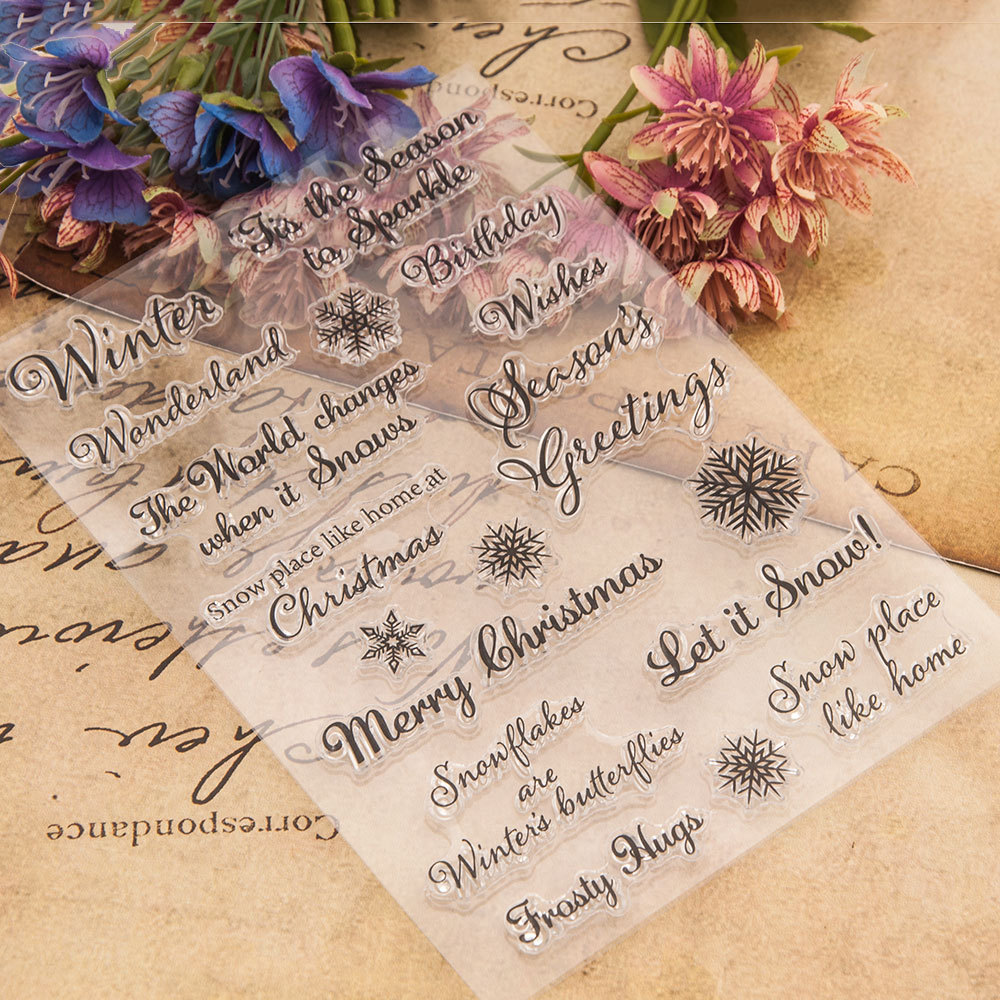 "Tis the Season
to Sparkle
Birthday
Wishes
Winter
Wonderland
Season's
Greetings
The World changes
when it Snows
Snow place like home at
Christmas
Merry Christmas
Let it Snow!
Snow place
like home
Snowflakes
are
Winter's butterflies
Frosty Hugs
Correspondance
Correspondance